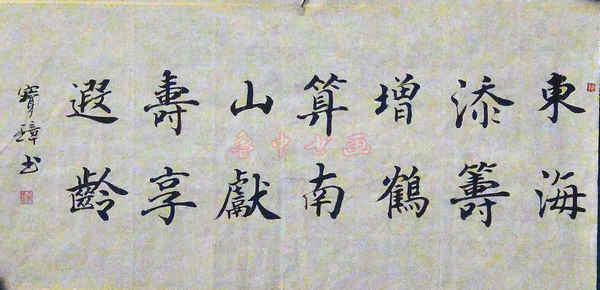 東海
添籌
增鶴
算南
山獻
壽享
遐齡
寶璋书